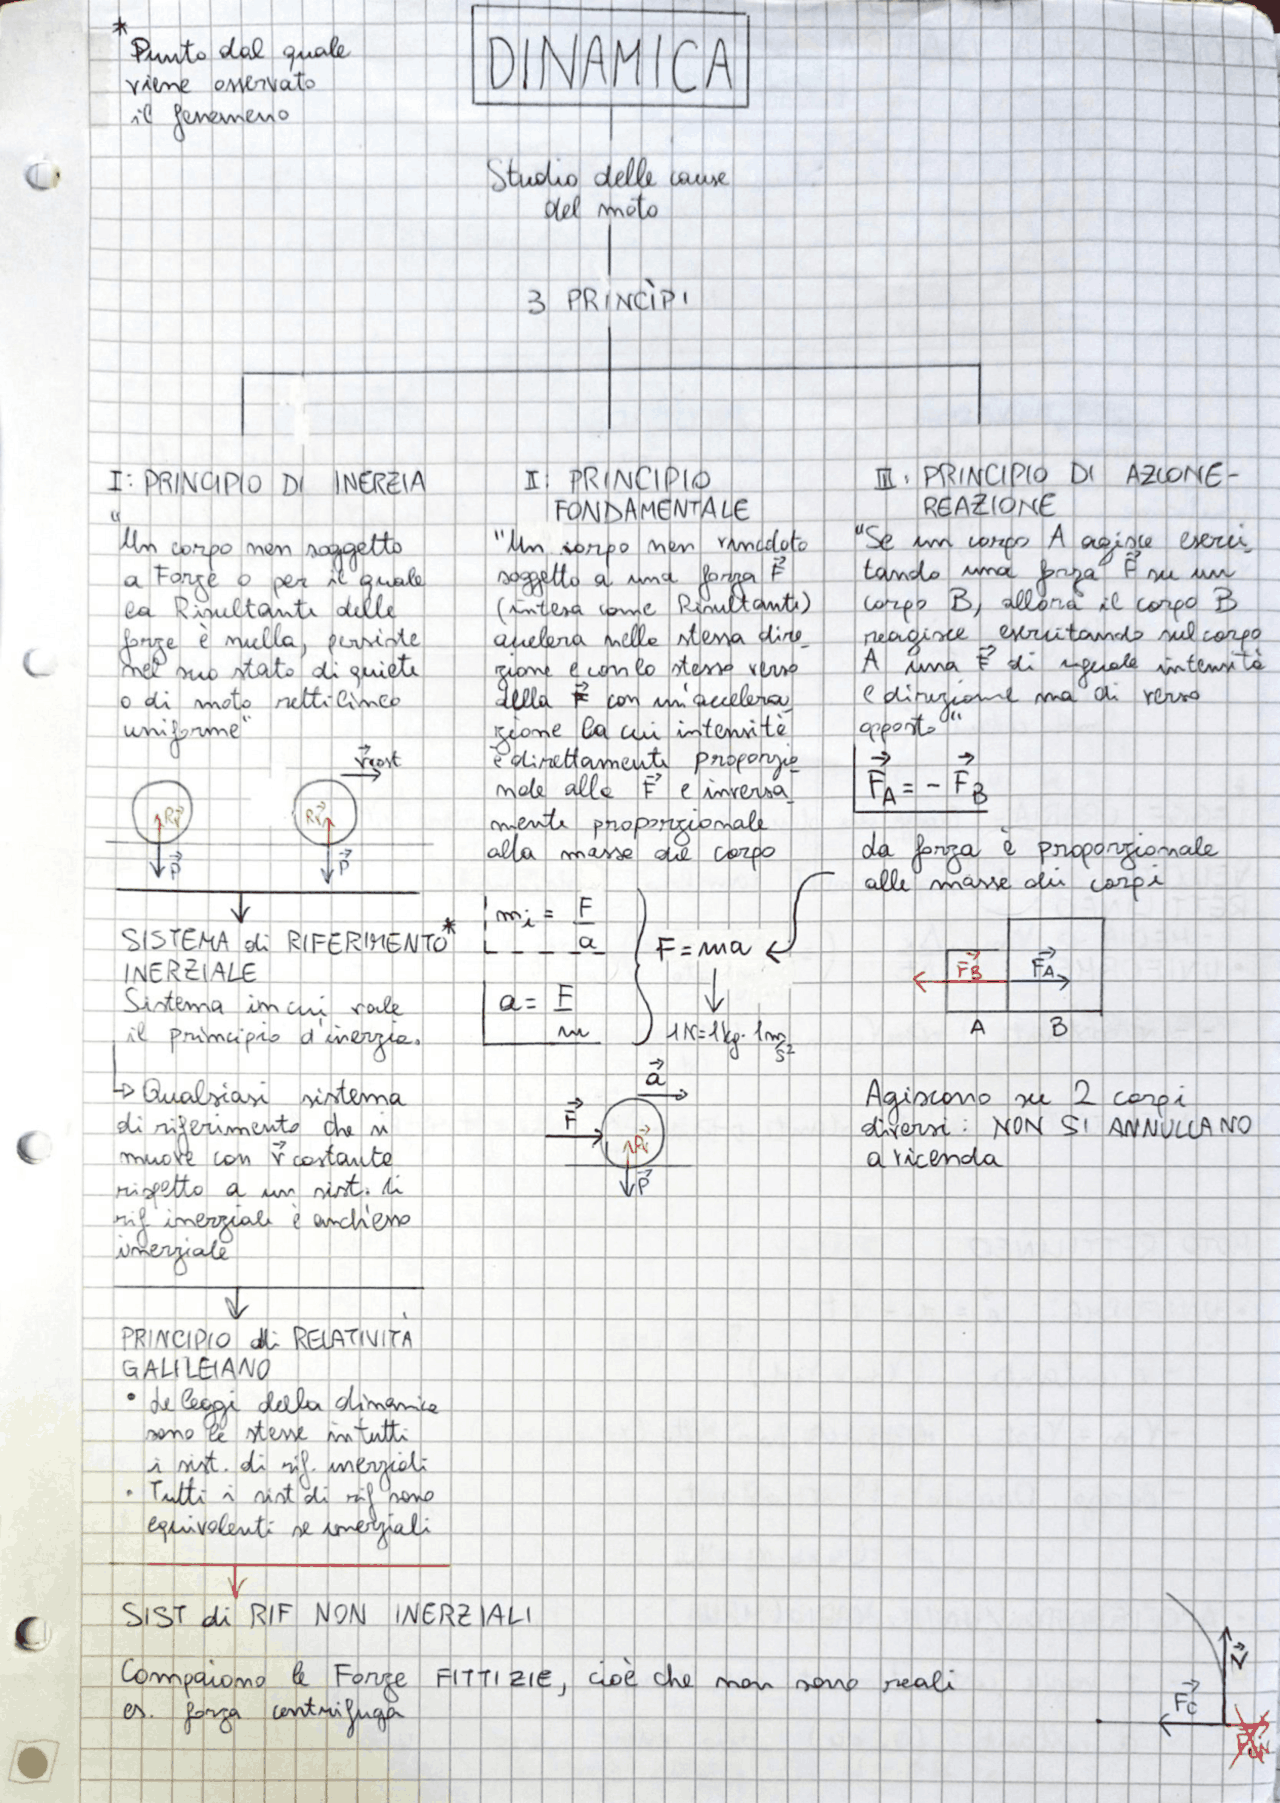 *
Punto dal quale
viene osservato
il fenomeno
DINAMICA
Studio delle cause
del moto
3 PRINCÌPI
I: PRINCIPIO DI INERZIA
"Un corpo non soggetto
a Forze o per il quale
la Risultante delle
forze è nulla, persiste
nel suo stato di quiete
o di moto rettilineo
uniforme"
v⃗cost
Rv⃗
P⃗
Rv⃗
P⃗
SISTEMA di RIFERIMENTO*
INERZIALE
Sistema in cui vale
il principio d'inerzia.
↳ Qualsiasi sistema
di riferimento che si
muove con v⃗ costante
rispetto a un sist. di
rif inerziale è anch'esso
inerziale
PRINCIPIO di RELATIVITÀ
GALILEIANO
• Le leggi della dinamica
sono le stesse in tutti
i sist. di rif. inerziali
• Tutti i sist di rif sono
equivalenti se inerziali
SIST di RIF NON INERZIALI
Compaiono le Forze FITTIZIE, cioè che non sono reali
es. forza centrifuga
II: PRINCIPIO
FONDAMENTALE
"Un corpo non vincolato
soggetto a una forza F⃗
(intesa come Risultante)
accelera nella stessa dire
zione e con lo stesso verso
della F⃗ con un'accelera
zione la cui intensità
è direttamente proporzio
nale alla F⃗ e inversa
mente proporzionale
alla massa del corpo
mᵢ = F/a
a = F/m
F = ma
1N=1kg · 1m/s²
a⃗
F⃗
Rv⃗
P⃗
III: PRINCIPIO DI AZIONE-
REAZIONE
"Se un corpo A agisce eserci
tando una forza F⃗ su un
corpo B, allora il corpo B
reagisce esercitando sul corpo
A una F⃗ di uguale intensità
e direzione ma di verso
opposto"
F⃗A = - F⃗B
La forza è proporzionale
alle masse dei corpi
F⃗B
F⃗A
A B
Agiscono su 2 corpi
diversi: NON SI ANNULLANO
a vicenda
V⃗
F⃗c